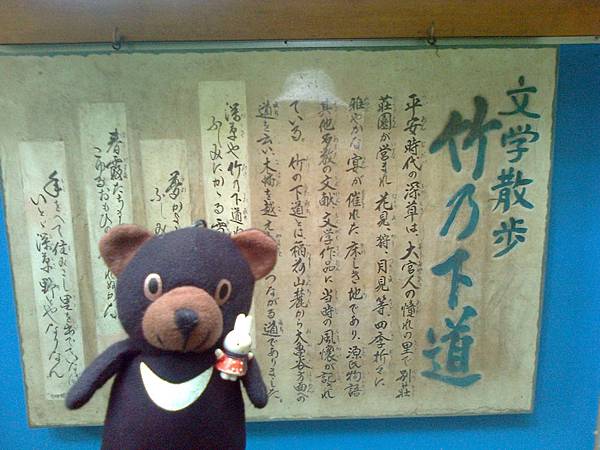 文学散歩
竹乃下道
平安時代の深草は、大宮人の憧れの里で別荘
荘園が営まれ花見、狩、月見等、四季折々に
雅やかな宴が催れた床しき地であり、源氏物語
其他多数の文献、文学作品に当時の風懐が記され
ている。竹の下道とは稲荷山麓から大亀谷方面への
道を云い木幡を越え
つながる道でありました。
深草や竹の下道
ふしみにかゝる雪
夢かよ
ふしみ
春霞たち
こゆるおもひ
年をへて住みこし里を出でていなば
いとゞ深草野とやなりなん